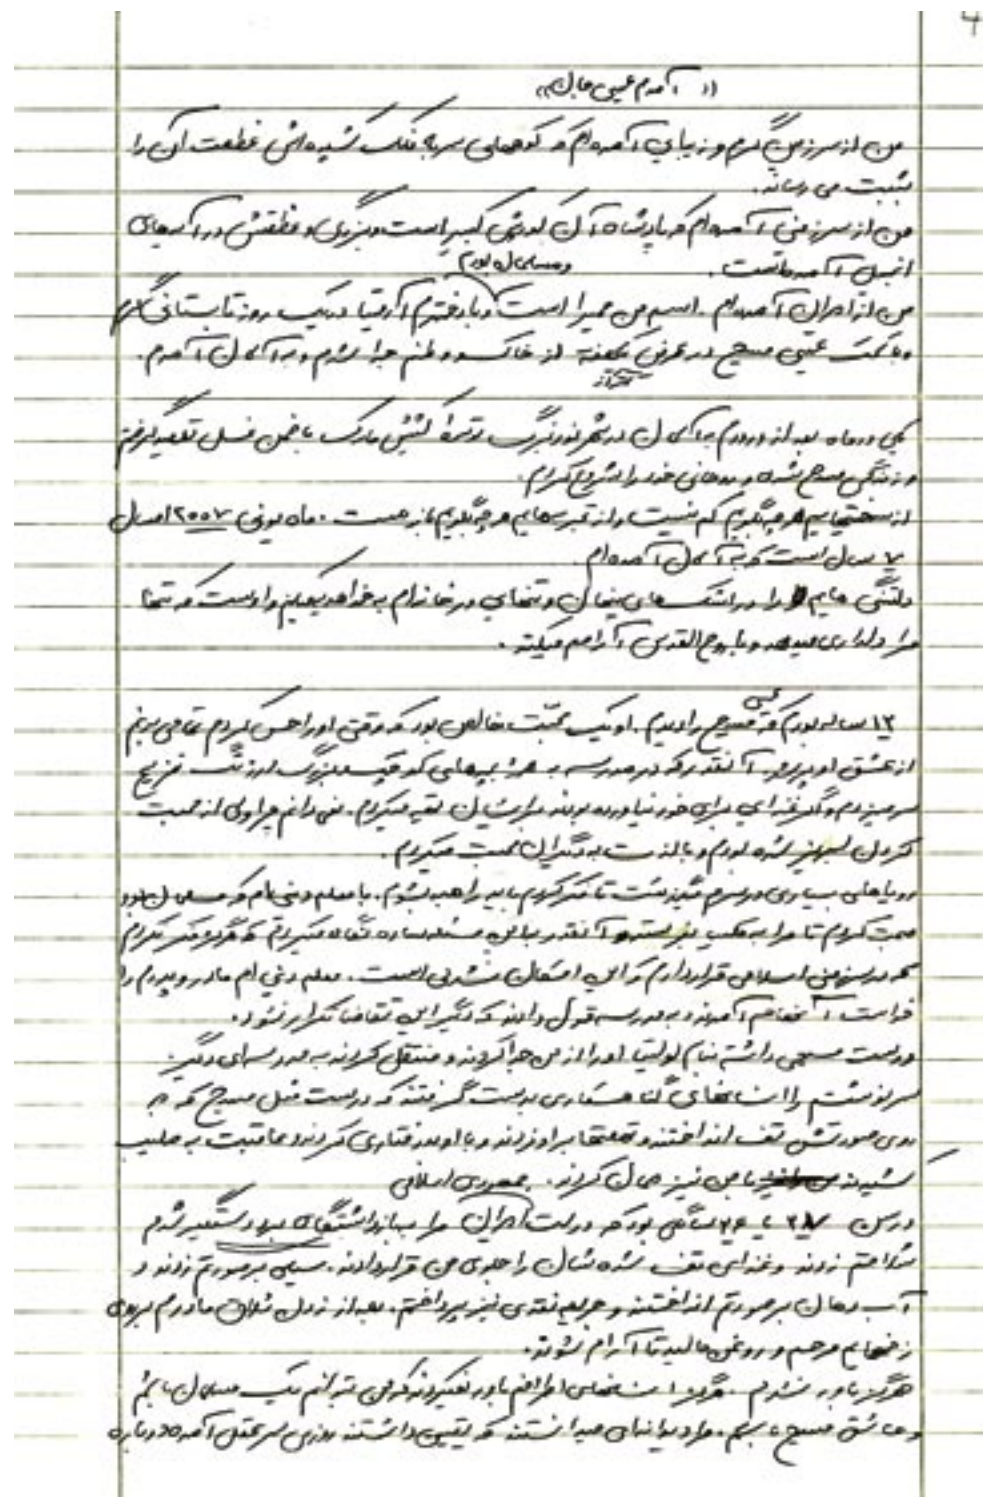 «آمدم عیسی جان»
من از سرزمین گرم و زیبایی آمده‌ام که کوههای سر به فلک کشیده‌اش عظمت آن را
بثبت می رساند.
من از سرزمینی آمده‌ام که پادشاه آن کورش کبیر است و بزرگی و عظمتش در آیه‌های
انجیل آمده است.
و مسلمان بودم
من از ایران آمده‌ام. اسم من حمیرا است و با دخترم آرمیتا در یک روز تابستانی گرم
و با کمک عیسی مسیح در عرض یکهفته از خاک و وطنم جدا شدم و به آلمان آمدم.
یکی دو ماه بعد از ورودم به آلمان در شهر نورنبرگ توسط کشیش مارک با غسل تعمید گرفتم
و زندگی مسیح شده و روحانی خود را شروع کردم.
از سختیهایم هر چه بگویم کم نیست و از تجربه‌هایم هر چه بگویم باز هست. ماه یونی ۲۰۰۷ امسال
۷ سال است که به آلمان آمده ام.
دلتنگی هایم را در اشک های پنهان و تنهایی در خانه‌ام به خدا هدیه میکنم و اوست که تنها
مرا دلداری میدهد و با روح القدس آرامم میکند.
۱۲ ساله بودم که عیسی مسیح را دیدم. او یک محبت خالص بود که وقتی او را حس کردم تمامی روحم
از عشق او پر شد. آنقدر که در مدرسه به همه بچه‌های کوچک و بزرگ در زنگ تفریح
سر میزدم و اگر غذایی برای خود نیاورده بودند برایشان تهیه میکردم. نمی دانم چرا ولی از محبت
کردن لبریز شده بودم و با لذت به دیگران محبت میکردم.
رویاهای بسیاری در سرم میگذشت تا فکر کردم باید راهبه بشوم. با معلم دینی‌ام که مسلمان بود
صحبت کردم تا مرا به مکتب بفرستد و آنقدر به این مسئله ساده نگاه میکردم که هرگز فکر نکردم
که در سرزمین اسلامی قرار دارم که این امکان نشدنی است. معلم دینی ام مادر و پدرم را
خواست آنها هم آمدند و به مدرسه قول دادند که دیگر این تقاضا تکرار نشود.
دوست مسیحی داشتم بنام لولیتا او را از من جدا کردند و منتقل کردند به مدرسه‌ای دیگر.
سرنوشتم را انسانهای گناهکاری بدست گرفتند که درست مثل مسیح که به
روی صورتش تف انداختند و تهمتها بر او زدند و با او بدرفتاری کردند و عاقبت به صلیب
کشیدند با من نیز چنان کردند. جمهوری اسلامی
در سن ۲۷ یا ۲۶ سالگی بود که دولت ایران مرا به بازداشتگاهی برد دستگیر شدم
شلاقم زدند و غذای تف شده شان را جلوی من قرار دادند. سیلی بر صورتم زدند و
آب دهان بر صورتم انداختند و جریمه نقدی نیز پرداختم. بعد از زدن شلاق مادرم بروی
زخمهایم مرهم و روغن مالید تا آرام شوند.
هرگز باور نشدم. هرگز انسانهای اطرافم باور نمیکردند که من میتوانم یک مسلمان باشم
و عاشق مسیح باشم. مرا دیوانه‌ای میدانستند که یقین داشتند روزی سر عقل آمده دوباره